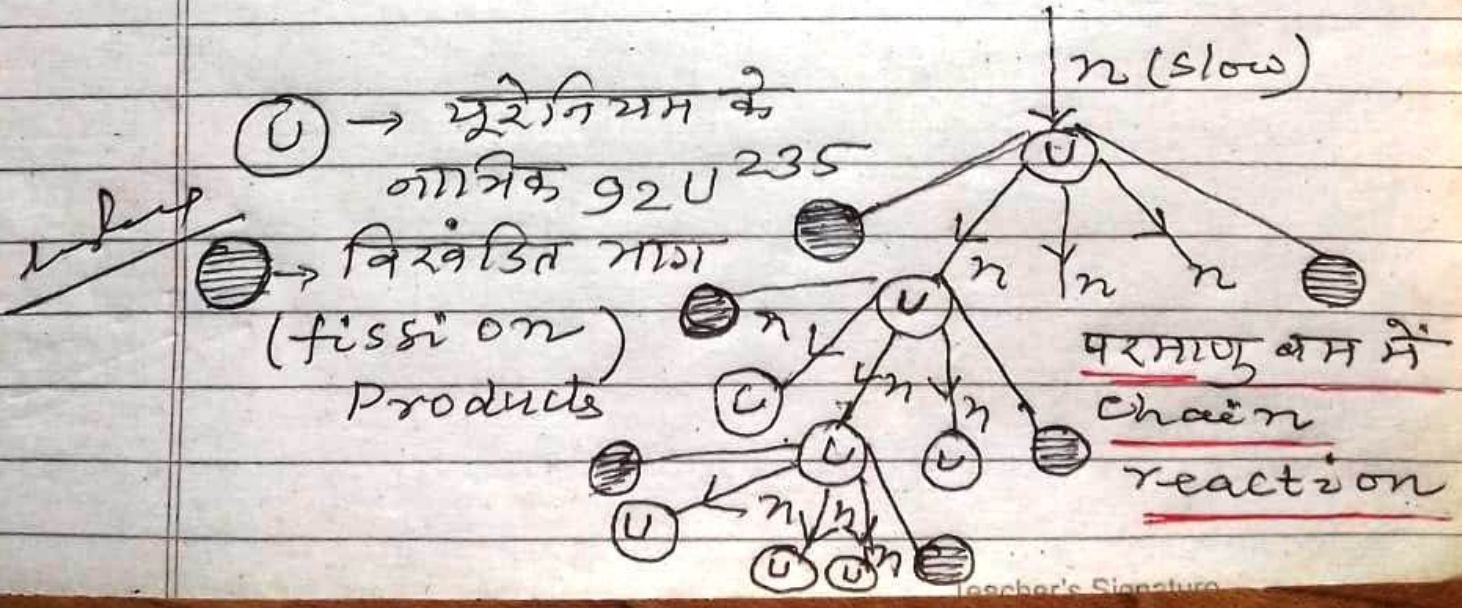 n (slow)
U → यूरेनियम के
नाभिक 92U235
→ विखंडित भाग
(fission)
Products
U
n
n
n
U
n
n
n
U
U
U
U
n
n
n
U
U
परमाणु बम में
chain
reaction
Teacher's Signature